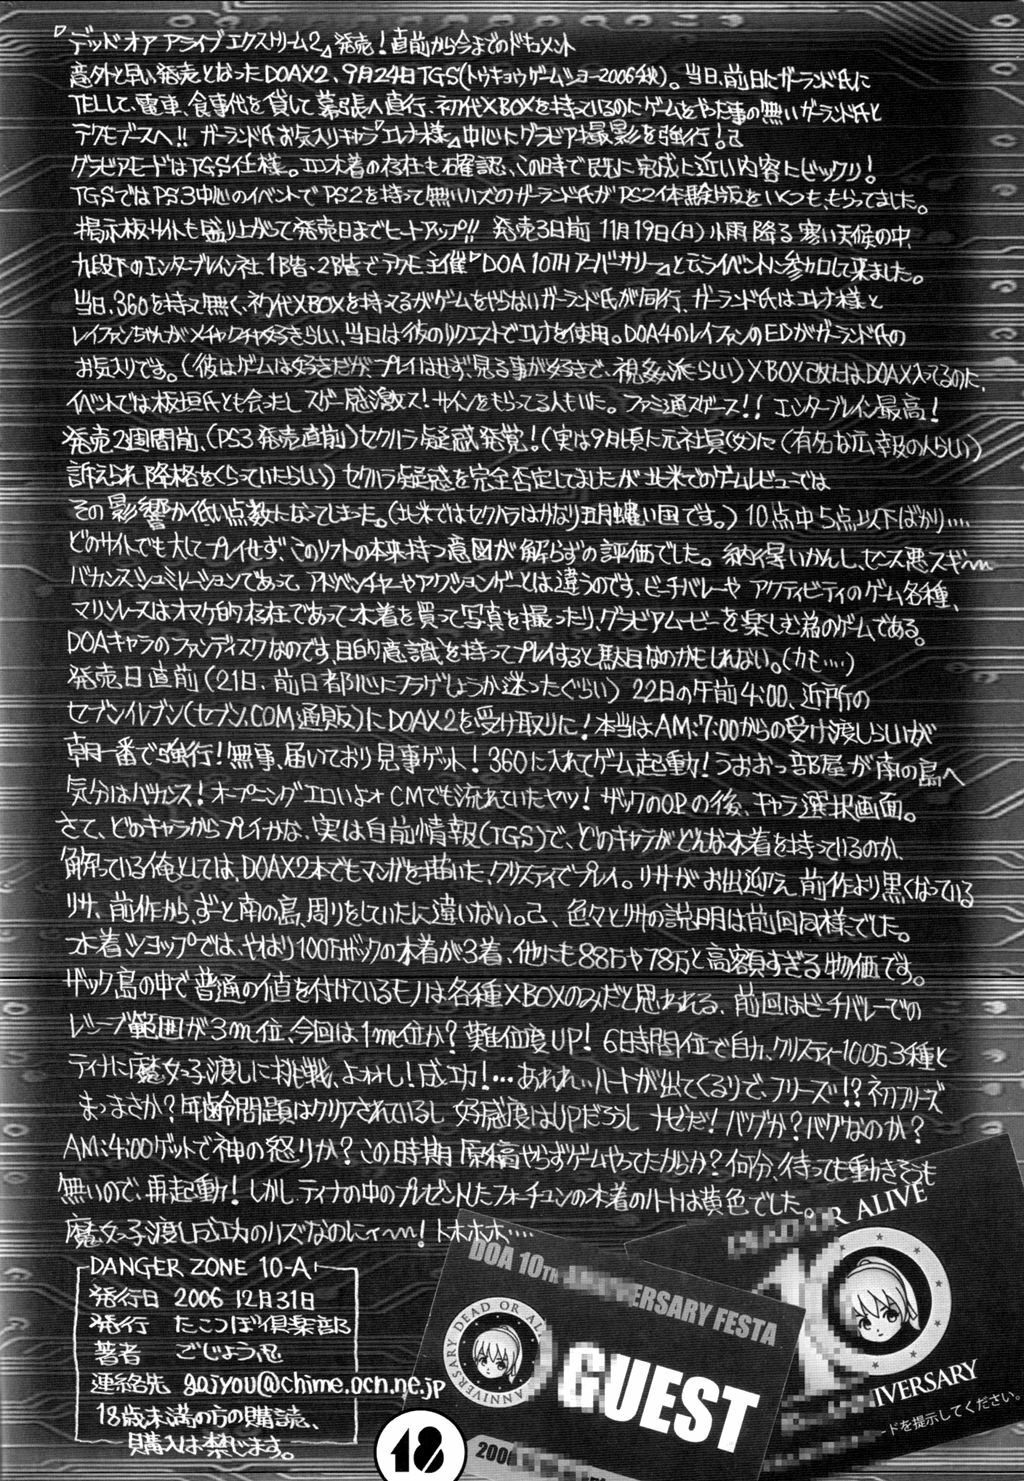 『デッド オア アライブ エクストリーム2』発売！直前から今までのドキュメント
意外と早い発売となったDOAX2、9月24日TGS(トウキョウゲームショー2006秋)。当日、前日にガーランド氏に
TELして、電車、食事代を貸して幕張へ直行、初代XBOXを持っているのにゲームをやった事の無いガーランド氏と
テクモブースへ!! ガーランド氏お気入りキャラ『エレナ様』中心にグラビア撮影を強行！
グラビアモードはTGS仕様。エロ水着の存在も確認、この時で既に完成に近い内容にビックリ！
TGSではPS3中心のイベントでPS2を持って無いハズのガーランド氏がPS2体験版をいくつも、もらってました。
掲示板サイトも盛り上がって発売日までヒートアップ!! 発売3日前 11月19日(日)小雨降る寒い天候の中、
九段下のエンターブレイン社1階、2階でテクモ主催『DOA 10THアニバーサリー』と云うイベントに参加して来ました。
当日、360を持って無く、初代XBOXを持ってるがゲームをやらないガーランド氏が同行、ガーランド氏はエレナ様と
レイファンちゃんがメチャクチャ好きらしい、当日は彼のリクエストでエレナを使用。DOA4のレイファンのEDがガーランド氏の
お気入りです。(彼はゲームは好きだが、プレイはせず、見る事が好きで、視姦派らしい) XBOX改にはDOAX入ってるのに、
イベントでは板垣氏とも会ったし スゲー感激ス！サインをもらってる人もいた。ファミ通スゲース！！ エンターブレイン最高！
発売2週間前、(PS3発売直前)セクハラ疑惑発覚！(実は9月頃に元社員(女)に(有名な広報の人らしい)
訴えられ降格をくらっていたらしい) セクハラ疑惑を完全否定してましたが 北米でのゲームレビューでは
その影響か低い点数になってしまった。(北米ではセクハラはかなり五月蝿い国です。) 10点中5点以下ばかり‥‥
どのサイトでも大してプレイせず、このソフトの本来持つ意図が解らずの評価でした。納得いかんし、センス悪スギ〜
バカンスシュミレーションであって、アドベンチャーやアクションゲーとは違うのです、ビーチバレーや アクティビティのゲーム各種、
マリンレースはオマケ的存在であって水着を買って写真を撮ったり、グラビアムービーを楽しむ為のゲームである。
DOAキャラのファンディスクなのです、目的意識を持ってプレイすると駄目なのかもしれない。(カモ‥‥)
発売日直前(21日、前日都心にフラゲしようか迷ったぐらい) 22日の午前4:00、近所の
セブンイレブン(セブン.COM通販)にDOAX2を受け取りに！本当はAM:7:00からの受け渡しらしいが
朝一番で強行！無事、届いており見事ゲット！360に入れてゲーム起動！うおおっ部屋が南の島へ
気分はバカンス！オープニングエロいよォ CMでも流れていたヤツ！ザックのOPの後、キャラ選択画面。
さて、どのキャラからプレイかな、実は自前情報(TGS)で、どのキャラがどんな水着を持っているのか、
解っている俺としては、DOAX2本でもマンガを描いた、クリスティでプレイ。リサがお出迎え 前作より黒くなっている
リサ、前作から、ずーと南の島、周りをしていたに違いない。色々とリサの説明は前回同様でした。
水着ショップでは、やはり100万ザックの水着が3着、他にも88万や78万と高額すぎる物価です。
ザック島の中で普通の値を付けているモノは各種XBOXのみだと思われる、前回はビーチバレーでの
レシーブ範囲が3m位、今回は1m位か？難位度UP！ 6日時間位で自力、クリスティー100万3種と
ティナに魔女っ子渡しに挑戦、よォォし！成功！…あれれぃハートが出てくるリで、フリーズ!? 初フリーズ
まっまさか？年齢問題はクリアされているし 好感度はUPだろうし ナゼだ！バグか？バグなのか？
AM:4:00ゲットで神の怒りか？この時期 原稿やらずゲームやってたからか？何分、待っても動きそうも
無いので、再起動！しかし、ティナの中のプレゼントしたフォーチュンの水着のハートは黄色でした。
魔女っ子渡し成功のハズなのにィ〜！トホホホ‥‥
DANGER ZONE 10-A
発行日 2006 12月31日
発行 たこつぼ倶楽部
著者 ごじょう忍
連絡先 gojyou@chime.ocn.ne.jp
18歳未満の方の購読、
購入は禁じます。
18
DOA 10TH ANNIVERSARY FESTA
DEAD OR AL
ANNIVERSARY
GUEST
2006
DEAD OR ALIVE
10
ANNIVERSARY
ードを提示してください。